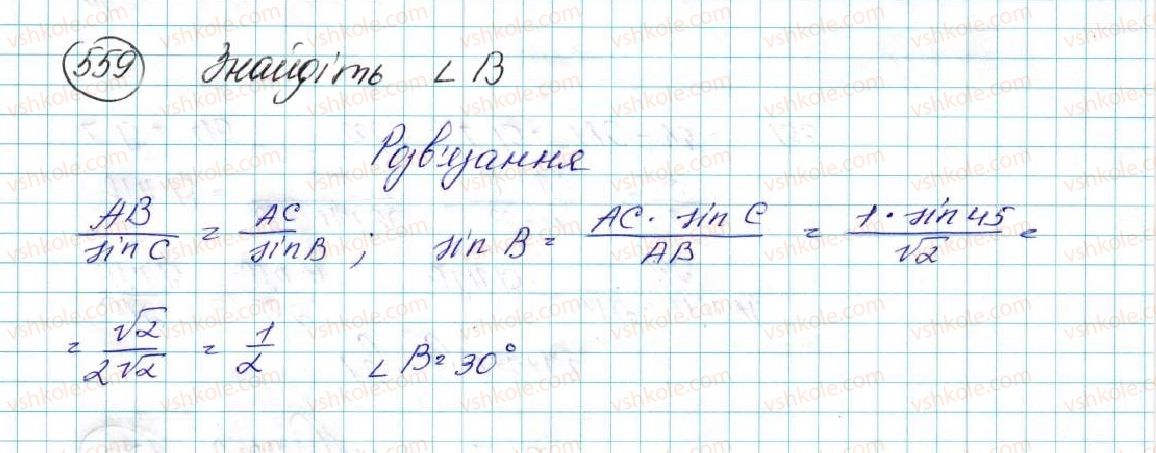 559 Знайдіть ∠ B
Розв'язання
AB / sin C = AC / sin B ; sin B = AC · sin C / AB = 1 · sin 45 / √2 =
= √2 / 2√2 = 1 / 2 ∠ B = 30°